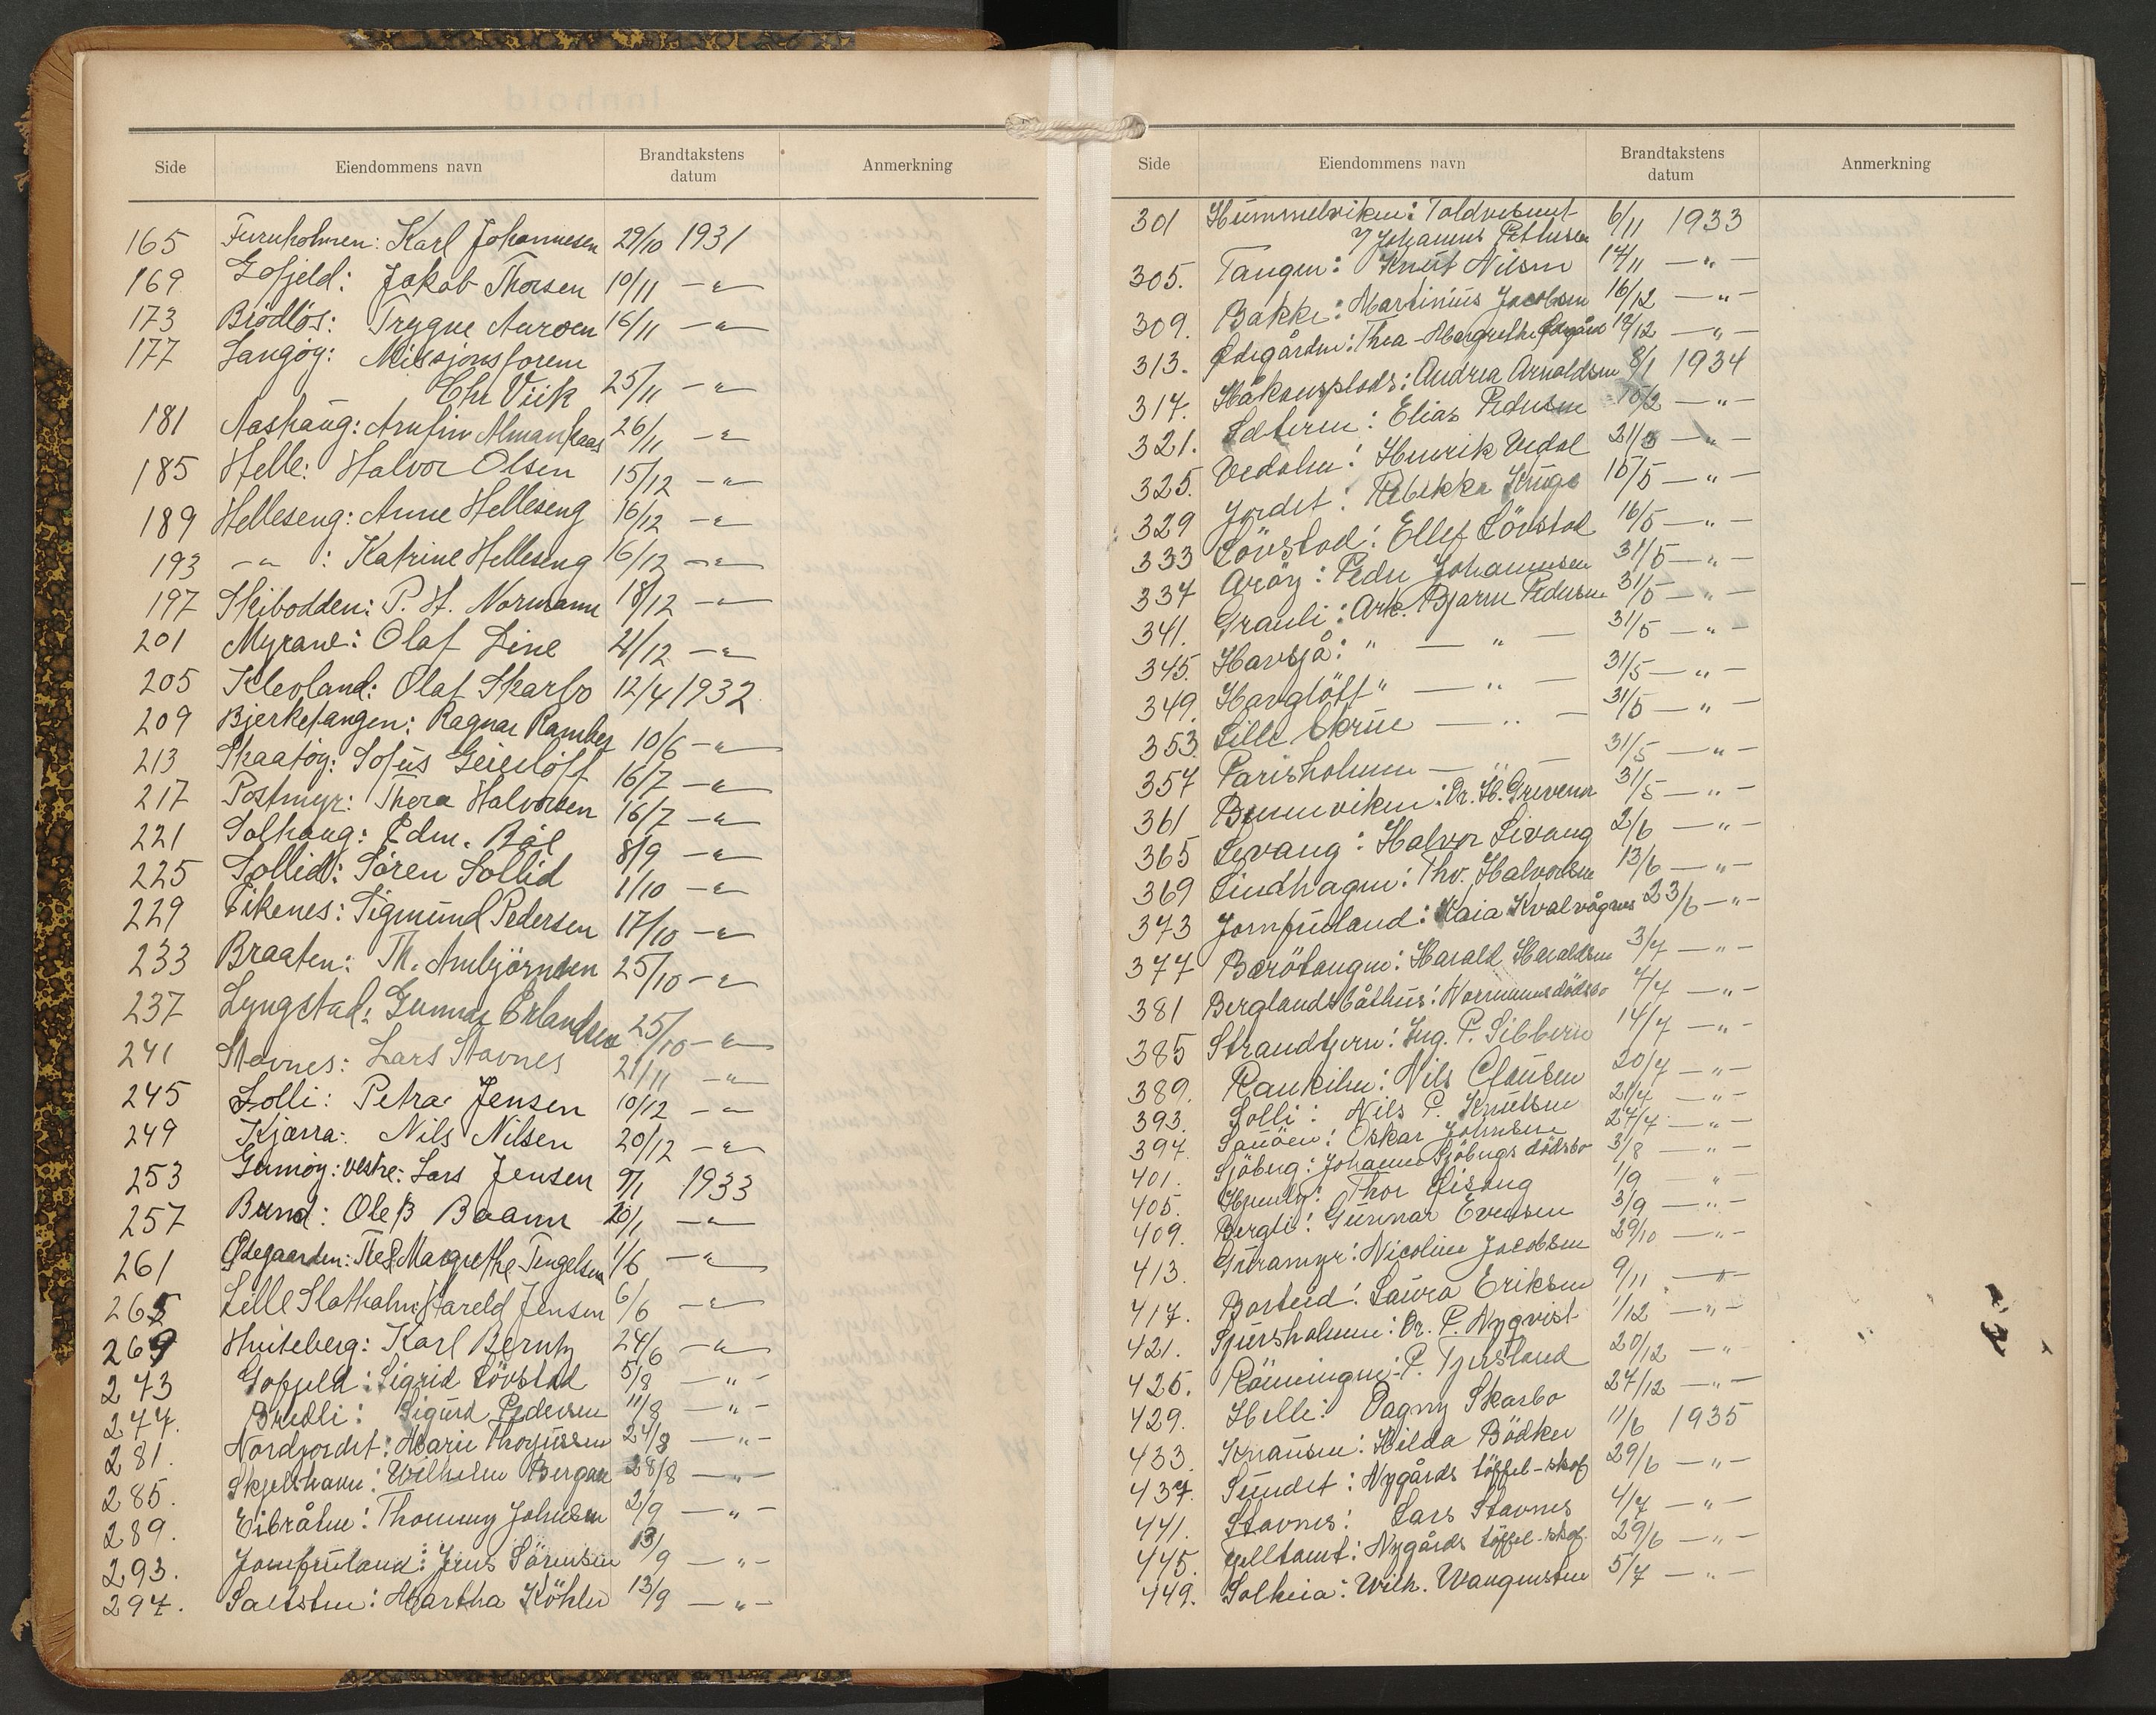 Side Eiendommens navn Brandtakstens datum Anmerkning
165 Furuholmen: Karl Johannesen 29/10 1931
169 Gofjeld: Jakob Thorsen 10/11 -"-
173 Brödlös: Trygve Auroen 16/11 -"-
177 Langöy: Missjonsforen
Chr Viik 25/11 -"-
181 Aashaug: Arnfin Almankaas 26/11 -"-
185 Helle: Halvor Olsen 15/12 -"-
189 Helleseng: Anne Helleseng 16/12 -"-
193 -"- : Katrine Helleseng 16/12 -"-
197 Skibodden: P. H. Normann 18/12 -"-
201 Myrane: Olaf Line 21/12 -"-
205 Kleoland: Olaf Skarbo 12/4 1932
209 Bjerketangen: Ragnar Ramberg 10/6 -"-
213 Skaatöy: Sofus Geierlöff 16/7 -"-
217 Postmyr: Thora Halvorsen 16/7 -"-
221 Solhaug: Edm. Bål 8/9 -"-
225 Sollid: Sören Sollid 1/10 -"-
229 Eikenes: Sigmund Pedersen 17/10 -"-
233 Braaten: Th. Arnbjörnsen 25/10 -"-
237 Lyngstad: Gunnar Erlandsen 25/10 -"-
241 Stavnes: Lars Stavnes 21/11 -"-
245 Solli: Petra Jensen 10/12 -"-
249 Kjærra: Nils Nilsen 20/12 -"-
253 Gumöy: vestre: Lars Jensen 9/1 1933
257 Bund: Ole B Baann 20/1 -"-
261 Ødegaarden: Thea Margrethe Tengelsen 1/6 -"-
265 Lille Slatholm: Hareld Jensen 6/6 -"-
269 Hviteberg: Karl Berntz 24/6 -"-
273 Gofjeld: Sigrid Lövstad 5/8 -"-
277. Bredli: Sigurd Pedersen 11/8 -"-
281. Nordjordet: Marie Thorjussen 24/8 -"-
285. Skjelshavn: Wilhelm Bergan 28/8 -"-
289. Eibråtn: Thommy Johnsen 2/9 -"-
293. Jomfruland: Jens Sörensen 13/9 -"-
297. Saltstn: Martha Köhler 13/9 -"-
Side Eiendommens navn Brandtakstens datum Anmerkning
301 Hummelviken: Toldvesenet 6/11 1933
v/ Johannes Pettersen
305. Tangen: Knut Nilsen 14/11 -"-
309. Bakke: Martinius Jacobsen 16/12 -"-
313. Ødegården: Thea-Margrethe Ødegård 19/12 -"-
317. Håkonsplads: Andrea Arnoldsen 8/1 1934
321. Sæteren: Elias Pedersen 10/2 -"-
325. Vedalen: Henrik Vedal 21/3 -"-
329 Jordet: Rebekka Kruge 15/5 -"-
333 Lövstad: Ellef Lövstad 16/5 -"-
337 Aröy: Peder Johannesen 31/5 -"-
341. Granli: Ark. Bjarne Pedersen 31/5 -"-
345. Havsjå: " — " — 31/5 -"-
349. Havglött " — " — 31/5 -"-
353. Lille Skrue — " — 31/5 -"-
357 Parisholmen — " — 31/5 -"-
361 Bjennviken: Dr. H. Grevenor 31/5 -"-
365 Levang: Halvor Levang 2/6 -"-
369 Lindhagen: Thv. Halvorsen 13/6 -"-
373 Jomfruland: Kaia Kvalvågnes 23/6 -"-
377 Barötangen: Harald Haraldsen 3/7 -"-
381 Berglandsbåthus: Normanns dödsbo 7/7 -"-
385 Strandtjern: Ing. P. Sibbern 14/7 -"-
389. Rankilen: Nils Clausen 20/7 -"-
393. Solli: Nils P. Knutsen 21/7 -"-
397. Sauöen: Oskar Johnsen 27/7 -"-
401. Sjöberg: Johannes Sjöbergs dödsbo 3/8 -"-
405. Thor Lisang 1/9 "
409. Bergli: Gunnar Evensen 3/9 -"-
413. Furamyr: Nicoline Jacobsen 29/10 -"-
417. Borteid: Laura Eriksen 9/11 -"-
421. Sjursholmen: Dr. P. Nyqvist 1/12 -"-
425. Rönningen: P. Tjersland 20/12 -"-
429. Helle: Dagny Skarbo 27/12 -"-
433. Knausen: Hilda Bödker 11/6 1935
437. Sundet: Nygårds töffel-skof 29/6 -"-
441. Stavnes: Lars Stavnes 4/7 -"-
445. Gjelltamt: Nygårds töffel-skof. 29/6 -"-
449. Solheia: Wilh. Wangensten 5/7 -"-